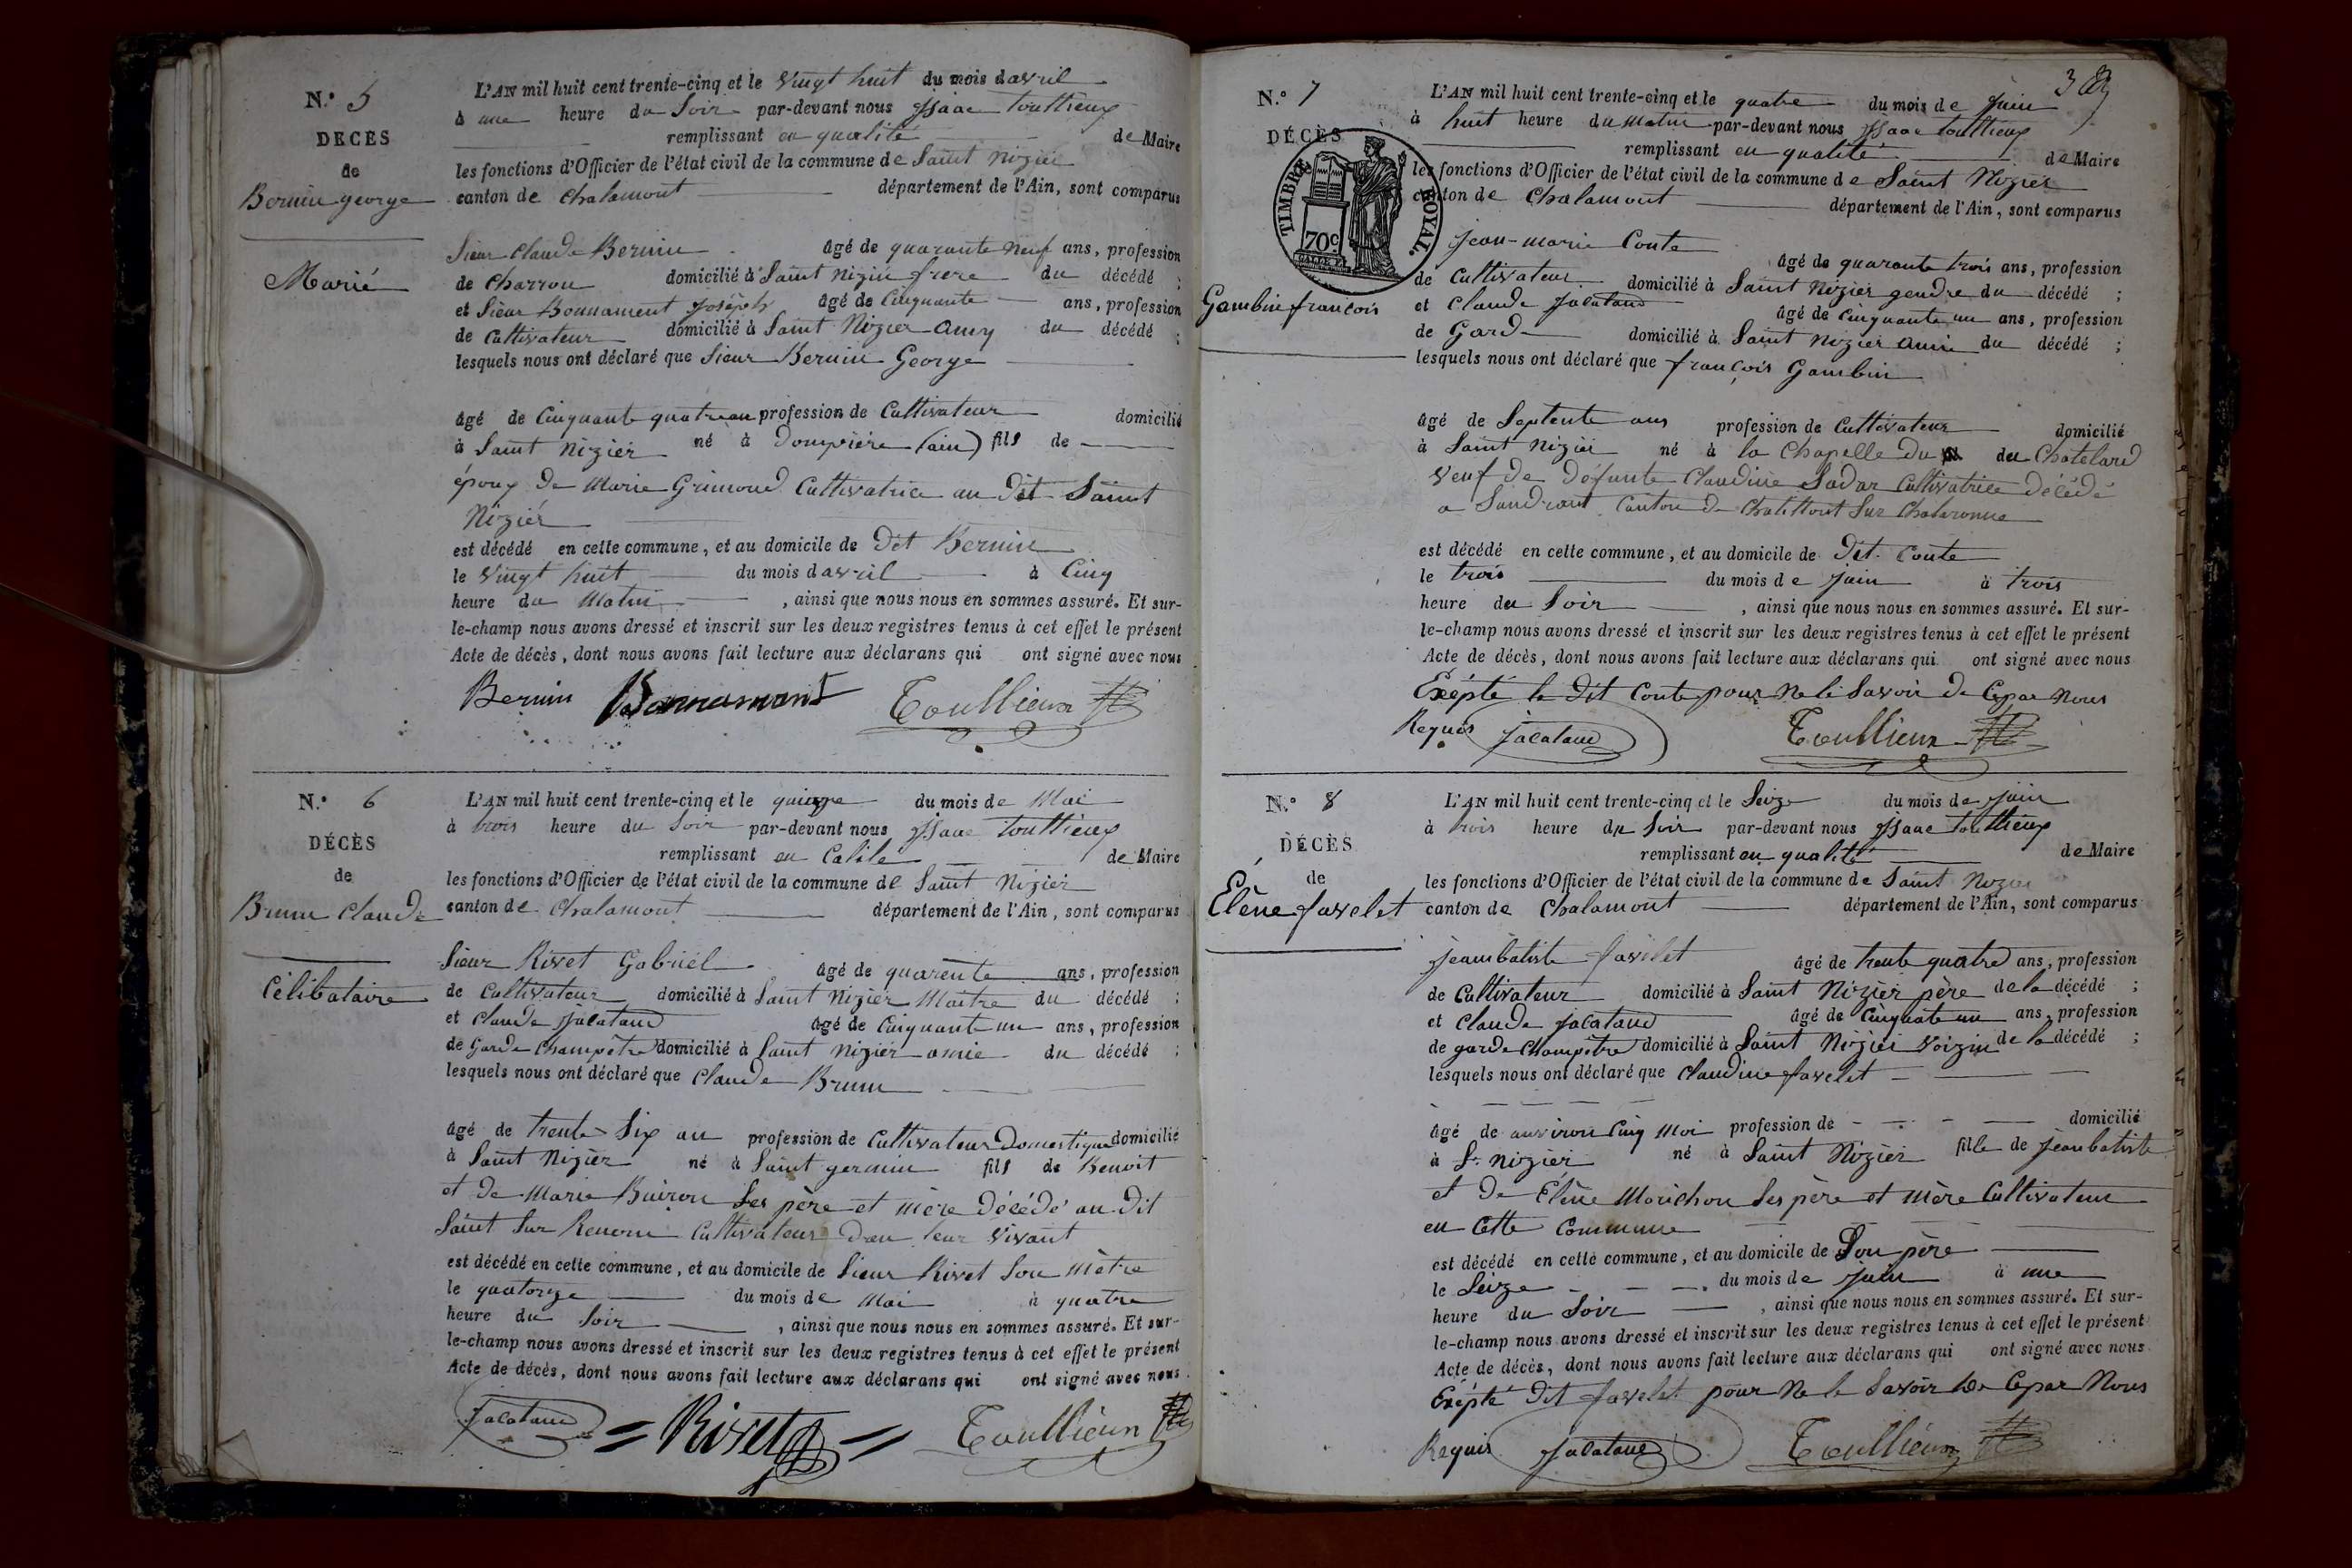 N.° 5
DÉCÈS
de
Bernin george
Marié
L'AN mil huit cent trente-cinq et le vingt huit du mois d avril
à une heure du Soir par-devant nous Issaac touttieux
remplissant en qualité de Maire
les fonctions d'Officier de l'état civil de la commune de Saint nizier
canton de chalamont département de l'Ain, sont comparus
Sieur claude Bernin âgé de quarante neuf ans, profession
de charron domicilié à Saint nizier frere du décédé ;
et Sieur Bonnament joséph âgé de Cinquante ans, profession
de Cultivateur domicilié à Saint Nizier amy du décédé ;
lesquels nous ont déclaré que Sieur Bernin George
âgé de Cinquant quatre an profession de Cultivateur domicilié
à Saint nizier né à dompiére (ain) fils de
époux De Marie Grimoud Cultivatrice au Dit Saint
Nizier
est décédé en cette commune, et au domicile de Dit Bernin
le vingt huit du mois d avril à Cinq
heure du Matin , ainsi que nous nous en sommes assuré. Et sur-
le-champ nous avons dressé et inscrit sur les deux registres tenus à cet effet le présent
Acte de décès, dont nous avons fait lecture aux déclarans qui ont signé avec nous
Bernin Bonnament Toullieux
N.° 6
DÉCÈS
de
Brunu Claude
Célibataire
L'AN mil huit cent trente-cinq et le quinze du mois de Mai
à trois heure du Soir par-devant nous Issaac touttieux
remplissant en Calité de Maire
les fonctions d'Officier de l'état civil de la commune de Saint Nizier
canton de Chalamont département de l'Ain, sont comparus
Sieur Rivet Gabriel âgé de quarente ans, profession
de Cultivateur domicilié à Saint nizier Maitre du décédé ;
et Claude jalataud âgé de Cinquante un ans, profession
de Garde Champêtre domicilié à Saint nizier amie du décédé ;
lesquels nous ont déclaré que Claude Brunu
âgé de trente Six an profession de Cultivateur Domestique domicilié
à Saint Nizier né à Saint germin fils de Benoit
et de Marie Buiron Ses père et mère Décédé au dit
Saint Sur Renom Cultivateur Dan leur vivant
est décédé en cette commune, et au domicile de Sieur Rivet Son Mètre
le quatorze du mois de Mai à quatre
heure du Soir , ainsi que nous nous en sommes assuré. Et sur-
le-champ nous avons dressé et inscrit sur les deux registres tenus à cet effet le présent
Acte de décès, dont nous avons fait lecture aux déclarans qui ont signé avec nous
Jalataud = Rivet = Toullieux
N.° 7
DÉCÈS
TIMBRE ROYAL
70c
Gambin francois
L'AN mil huit cent trente-cinq et le quatre du mois de Juin
à huit heure du Matin par-devant nous Issaac touttieux
remplissant en qualité de Maire
les fonctions d'Officier de l'état civil de la commune de Saint Nizier
canton de Chalamont département de l'Ain, sont comparus
Jean-marie Conte âgé de quarante trois ans, profession
de Cultivateur domicilié à Saint Nizier gendre du décédé ;
et Claude jalataud âgé de Cinquante un ans, profession
de Gard domicilié à Saint nizier amie du décédé ;
lesquels nous ont déclaré que françois Gambin
âgé de Septente ans profession de Cultivateur domicilié
à Saint nizier né à la Chapelle Du du Chatelard
veuf de Défunte Claudine Sadar Cultivatrice décédé
a Sandrant Canton de Chatillont Sur Chalaronne
est décédé en cette commune, et au domicile de Dit Conte
le trois du mois de Juin à trois
heure du Soir , ainsi que nous nous en sommes assuré. Et sur-
le-champ nous avons dressé et inscrit sur les deux registres tenus à cet effet le présent
Acte de décès, dont nous avons fait lecture aux déclarans qui ont signé avec nous
Exépté le Dit Conte pour Ne le Savoir de Cepar Nous
Requis jalataud Toullieux
N.° 8
DÉCÈS
de
Élène favelet
L'AN mil huit cent trente-cinq et le Seize du mois de Juin
à trois heure du Soir par-devant nous Issaac touttieux
remplissant en qualité de Maire
les fonctions d'Officier de l'état civil de la commune de Saint Nizier
canton de Chalamont département de l'Ain, sont comparus
jeambatiste favelet âgé de trente quatre ans, profession
de Cultivateur domicilié à Saint Nizier père de la décédé ;
et Claude jalataud âgé de Cinquate un ans, profession
de garde Champêtre domicilié à Saint Nizier voizin de la décédé ;
lesquels nous ont déclaré que Claudine favelet
âgé de anviron Cinq Moi profession de domicilié
à St. nizier né à Saint Nizier fille de jeanbatiste
et de Élène Moichon Ses père et mère Cultivateur
en Cette Commune
est décédé en cette commune, et au domicile de Son père
le Seize du mois de juin à une
heure du Soir , ainsi que nous nous en sommes assuré. Et sur-
le-champ nous avons dressé et inscrit sur les deux registres tenus à cet effet le présent
Acte de décès, dont nous avons fait lecture aux déclarans qui ont signé avec nous
Exépté Dit favelet pour Ne le Savoir De Cepar Nous
Requis Jalataud Toullieux